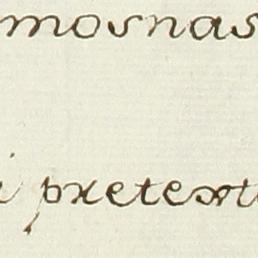 mosnas
i pretext